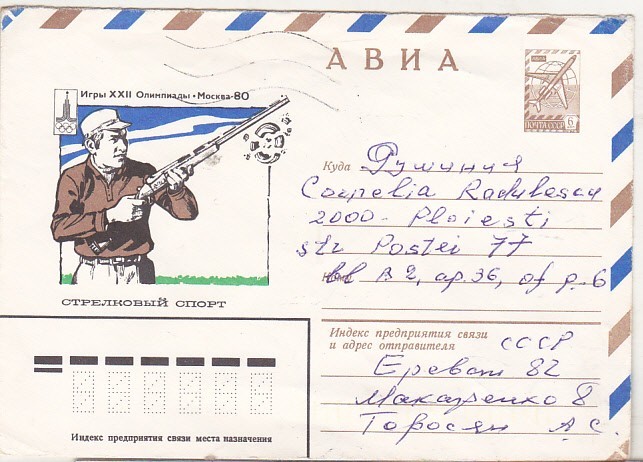 АВИА
Игры XXII Олимпиады • Москва-80
АВИА
ПОЧТА СССР 6
Куда Румыния
Cornelia Radulescu
2000 - Ploiesti
str Postei 77
Кому bl B2, ap. 36, of p.-6
СТРЕЛКОВЫЙ СПОРТ
Индекс предприятия связи
и адрес отправителя СССР
Ереван 82
Макаренко 8
Торосян А С.
Индекс предприятия связи места назначения